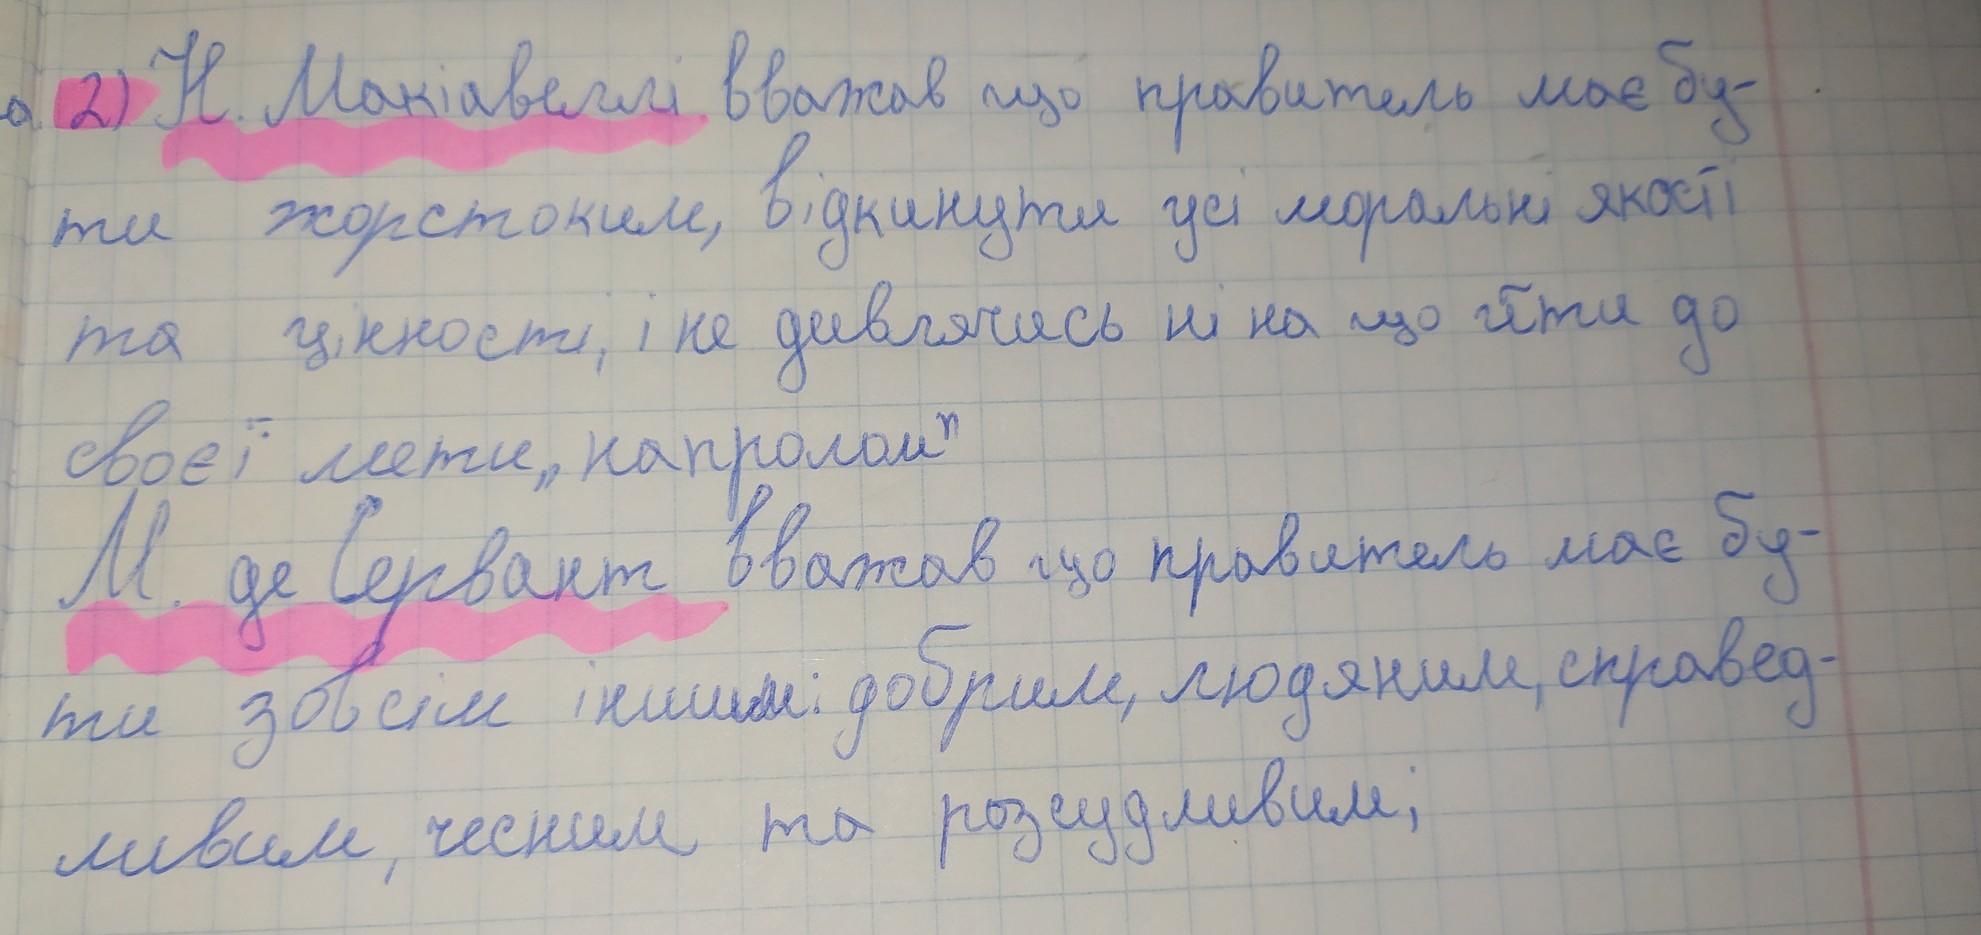 2) Н. Макіавеллі вважав що правитель має бу-
ти жорстоким, відкинути усі моральні якості
та цінності, і не дивлячись ні на що йти до
своєї мети „напролом"
М. де Сервант вважав що правитель має бу-
ти зовсім іншим: добрим, людяним, справед-
ливим, чесним та розсудливим;